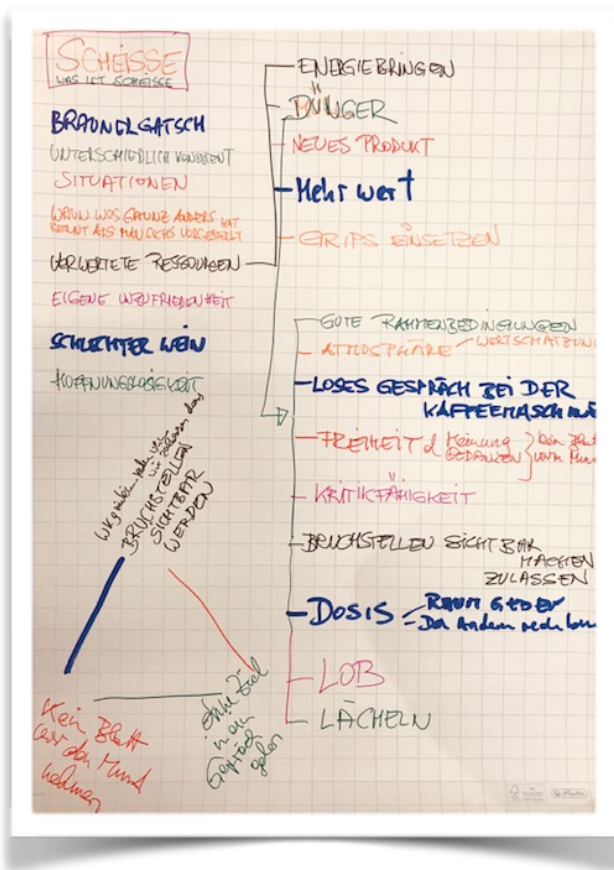 SCHEISSE
WAS IST SCHEISSE
BRAUNER GATSCH
UNTERSCHIEDLICH KONSISTENT
SITUATIONEN
WAUN WOS GAUNZ ANDERS
KUMMT ALS MAN SICHS VORGESTELLT
VERWERTETE RESSOURCEN
EIGENE UNZUFRIEDENHEIT
SCHLECHTER WEIN
HOFFNUNGSLOSIGKEIT
ENERGIE BRINGEN
DÜNGER
NEUES PRODUKT
Mehr wert
GRIPS EINSETZEN
GUTE RAHMENBEDINGUNGEN
ATMOSPHÄRE WERTSCHÄTZUNG
LOSES GESPRÄCH BEI DER
KAFFEEMASCHI
FREIHEIT d Meinung
GEDANKEN
kein Blatt
vorm Mun
KRITIKFÄHIGKEIT
BRUCHSTELLEN SICHTBAR
MACHEN
ZULASSEN
DOSIS RAUM GEBEN
LOB
LÄCHELN
BRUCHSTELLEN
SICHTBAR
WERDEN
Kein Blatt
vor den Mund
nehmen
Ohne Ziel
in ein
Gespräch
gehen